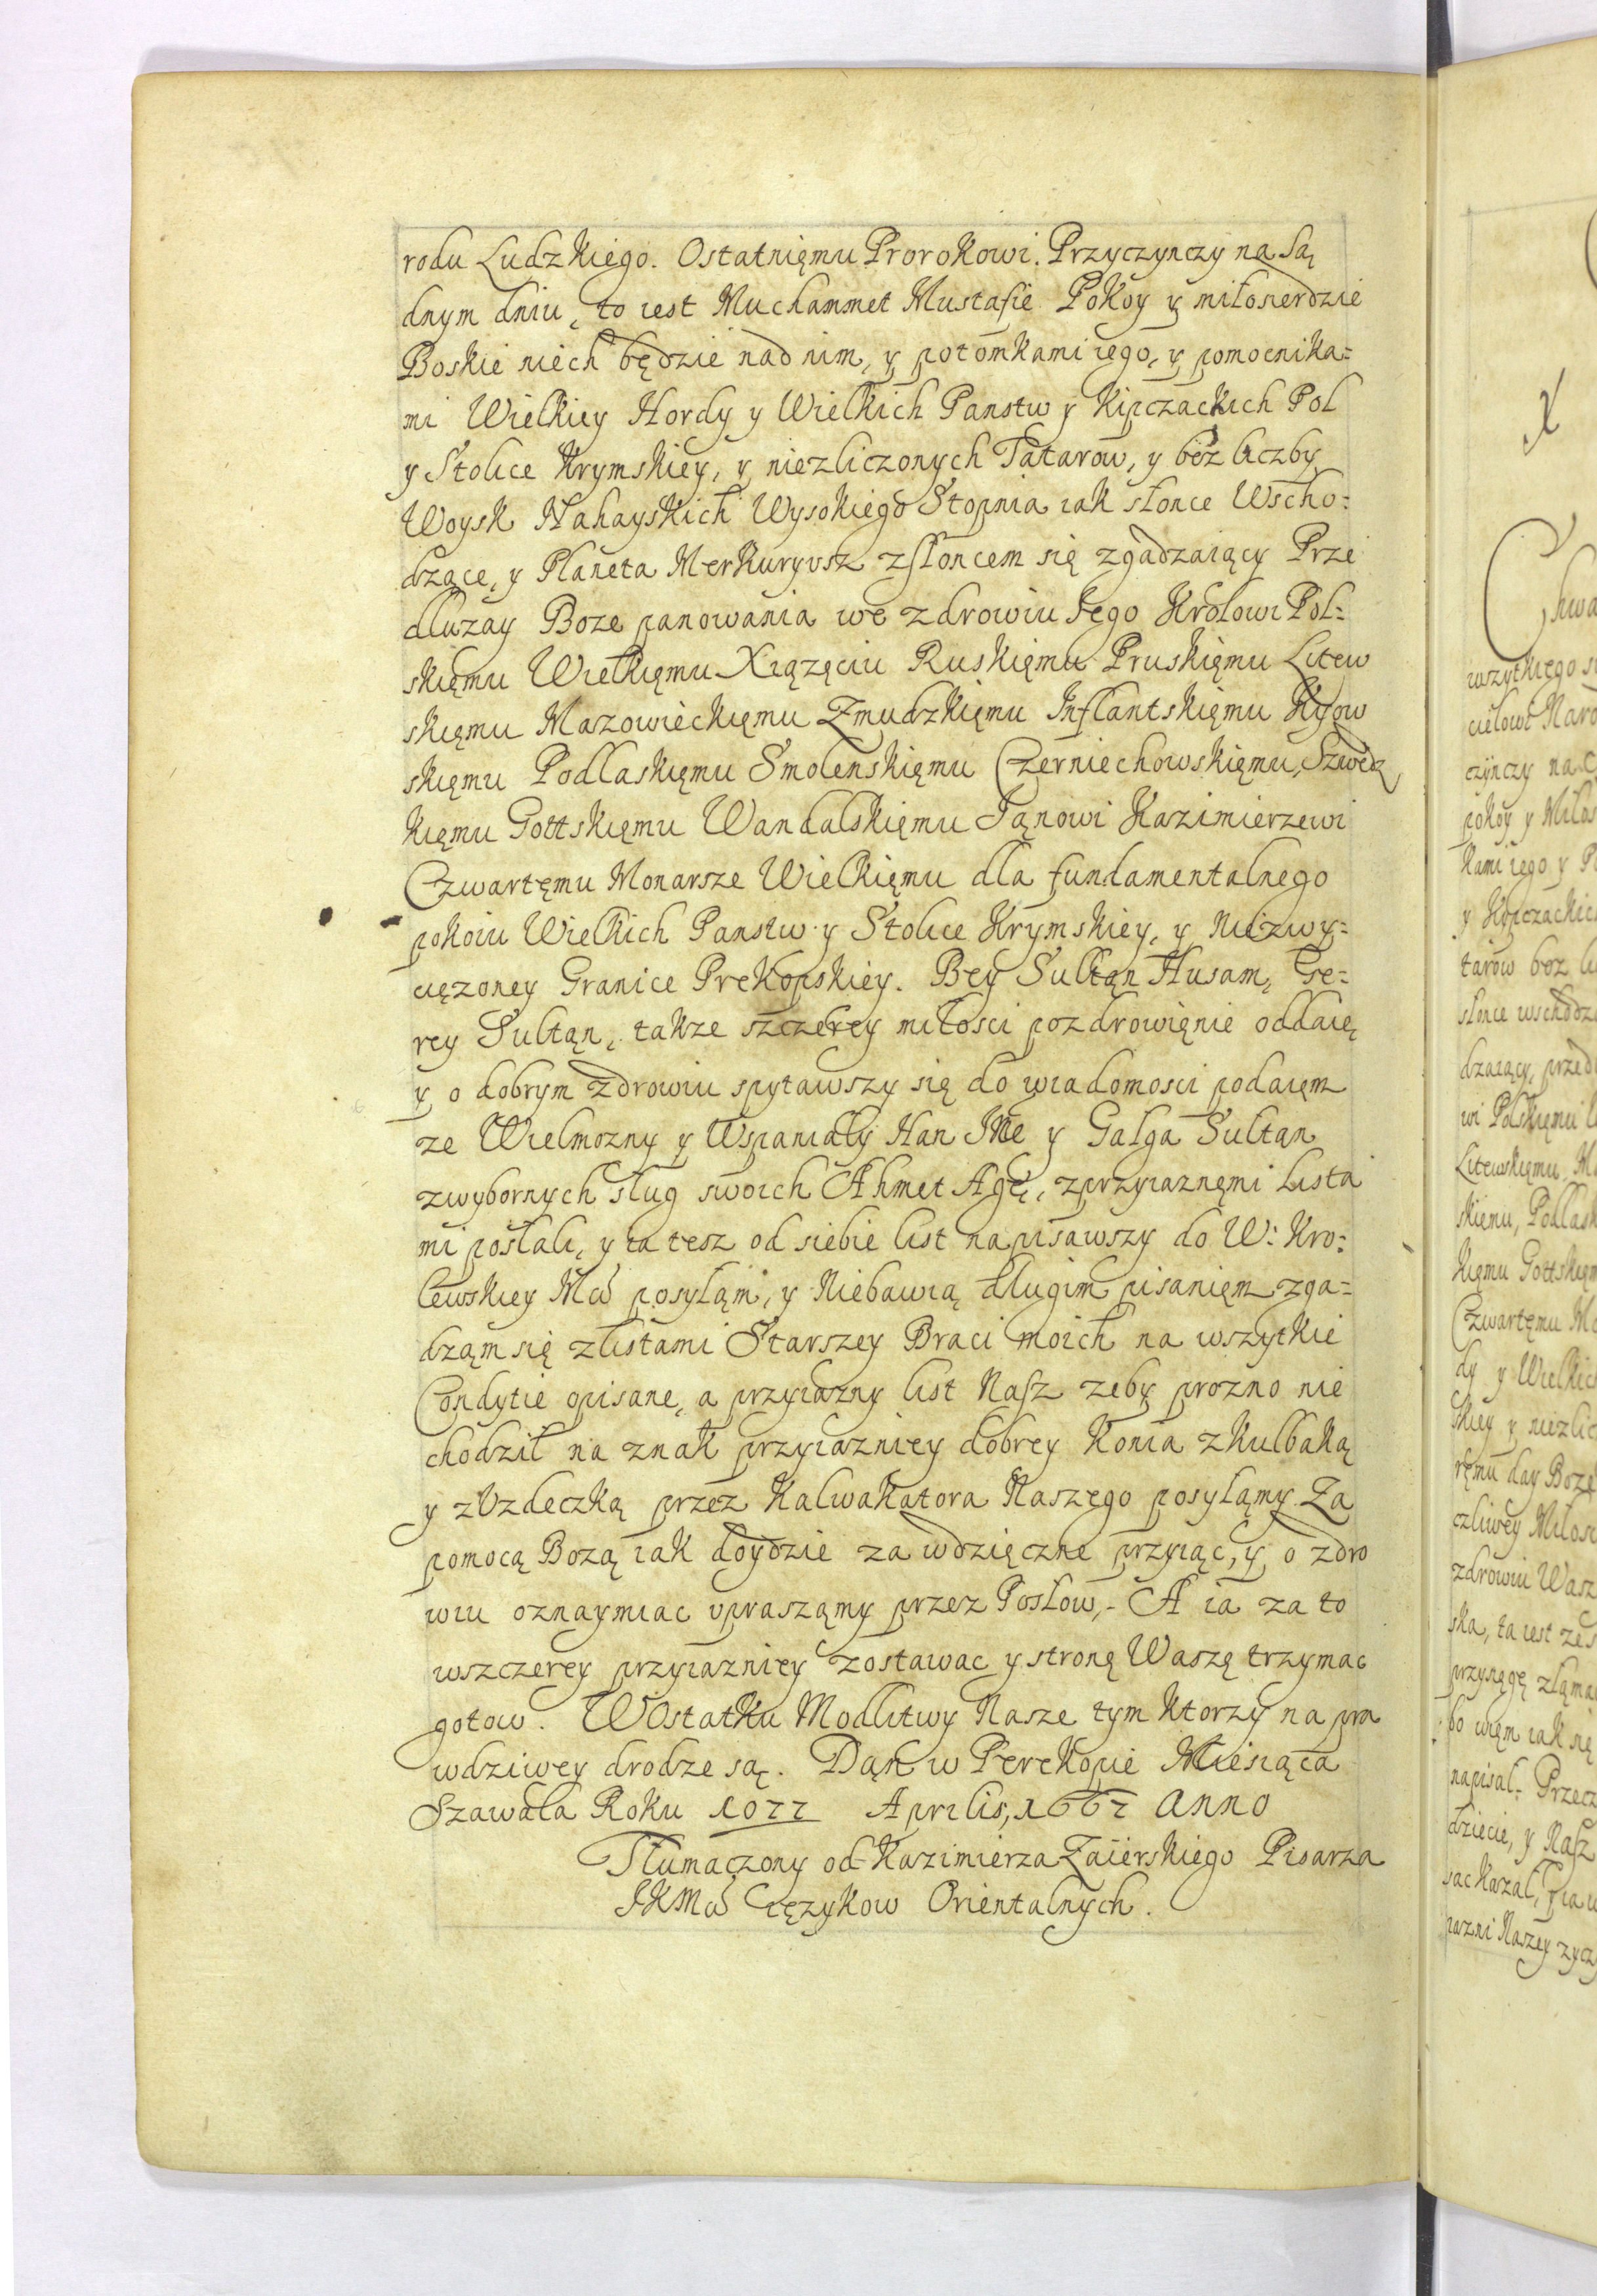 rodu Ludzkiego. Ostatnięmu Prorokowi. Przyczynczy na Są
dnym dniu, to iest Muchammet Mustafie Pokoy y miłosierdzie
Boskie niech będzie nad nim, y potomkami iego, y pomocnika=
mi Wielkiey Hordy y Wielkich Panstw y Kipczackich Pol
y Stolice Krymskiey, y niezliczonych Tatarow, y bez liczby
Woysk Nahayskich Wysokiego Stopnia iak słonce Wscho=
dzące, y Planeta Merkuryusz zsłoncem się zgadzaiący Prze
dłuzay Boze panowania we zdrowiu Jego Krolowi Pol=
skięmu Wielkięmu Xiązęciu Ruskięmu Pruskięmu Litew
skięmu Mazowieckięmu Zmudzkięmu Inflantskięmu Kijow
skięmu Podlaskięmu Smolenskięmu Czerniechowskięmu, Szwedz
kięmu Gottskięmu Wandalskięmu Janowi Kazimierzewi
Czwartęmu Monarsze Wielkięmu dla fundamentalnego
pokoiu Wielkich Panstw y Stolice Krymskiey, y Niezwy=
cięzoney Granice Prekopskiey. Bey Sultąn Husam, Ge=
rey Sultąn, takze szczerey miłosci pozdrowięnie oddaię
y o dobrym zdrowiu spytawszy się do wiadomosci podaięm
ze Wielmozny y Wspaniały Han JMc y Gałga Sultąn
zwybornych sług swoich Ahmet Agę, zprzyiaznęmi lista
mi posłali, y ia tesz od siebie list napisawszy do W: Kro=
lewskiey Mci posyłąm, y Niebawią długim pisanięm zga=
dząm się zlistami Starszey Braci moich na wszytkie
Condytie opisane, a przyiazny list Nasz zeby prozno nie
chodził na znak przyiazniey dobrey Konia zkulbaką
y zUzdeczką przez Kalwakatora Naszego posyłąmy Za
pomocą Bozą iak doydzie za wdzięczne przyiąc, y o zdro
wiu oznaymiac uprasząmy przez Posłow,- A ia za to
wszczerey przyiazniey zostawac y stronę Waszą trzymac
gotow. WOstatku Modlitwy Nasze tym ktorzy na pra
wdziwey drodze są. Dąn w Perekopie Miesiąca
Szawala Roku 1072 Aprilis, 1662 Anno
Tłumaczony od Kazimierza Zaierskiego Pisarza
JKMci ięzykow Orientalnych.
X